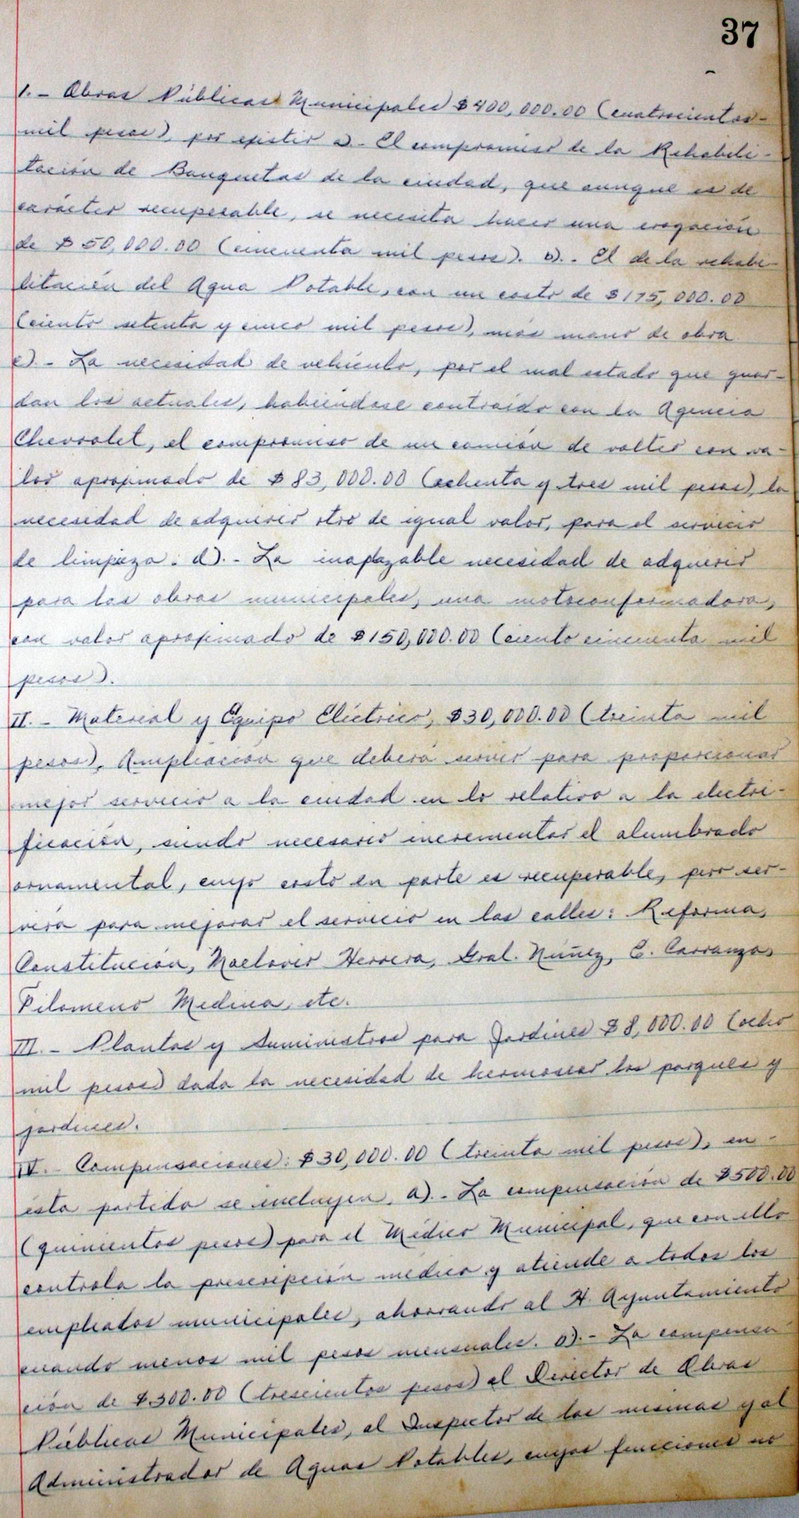 37
1.- Obras Públicas Municipales $400,000.00 (cuatrocientos-
mil pesos), por existir a).- El compromiso de la Rehabili-
tación de Banquetas de la ciudad, que aunque es de
carácter recuperable, se necesita hacer una erogación
de $50,000.00 (cincuenta mil pesos). b).- El de la rehabi-
litación del Agua Potable, con un costo de $175,000.00
(ciento setenta y cinco mil pesos), más mano de obra
c).- La necesidad de vehículo, por el mal estado que guar-
dan los actuales, habiéndose contraído con la Agencia
Chevrolet, el compromiso de un camión de volteo con va-
lor aproximado de $83,000.00 (ochenta y tres mil pesos), la
necesidad de adquirir otro de igual valor, para el servicio
de limpieza. d).- La inaplazable necesidad de adquirir
para las obras municipales, una motoconformadora,
con valor aproximado de $150,000.00 (ciento cincuenta mil
pesos).
II.- Material y Equipo Eléctrico, $30,000.00 (treinta mil
pesos), Ampliación que deberá servir para proporcionar
mejor servicio a la ciudad en lo relativo a la electri-
ficación, siendo necesario incrementar el alumbrado
ornamental, cuyo costo en parte es recuperable, pero ser-
virá para mejorar el servicio en las calles: Reforma,
Constitución, Maclovio Herrera, Gral. Núñez, E. Carranza,
Filomeno Medina, etc.
III.- Plantas y Suministros para Jardines $8,000.00 (ocho
mil pesos) dada la necesidad de hermosear los parques y
jardines.
IV.- Compensaciones: $30,000.00 (treinta mil pesos), en-
ésta partida se incluyen, a).- La compensación de $500.00
(quinientos pesos) para el Médico Municipal, que con ello
controla la prescripción médica y atiende a todos los
empleados municipales, ahorrando al H. Ayuntamiento
cuando menos mil pesos mensuales. b).- La compensa-
ción de $300.00 (trescientos pesos) al Director de Obras
Públicas Municipales, al Inspector de las mismas y al
Administrador de Aguas Potables, cuyas funciones no